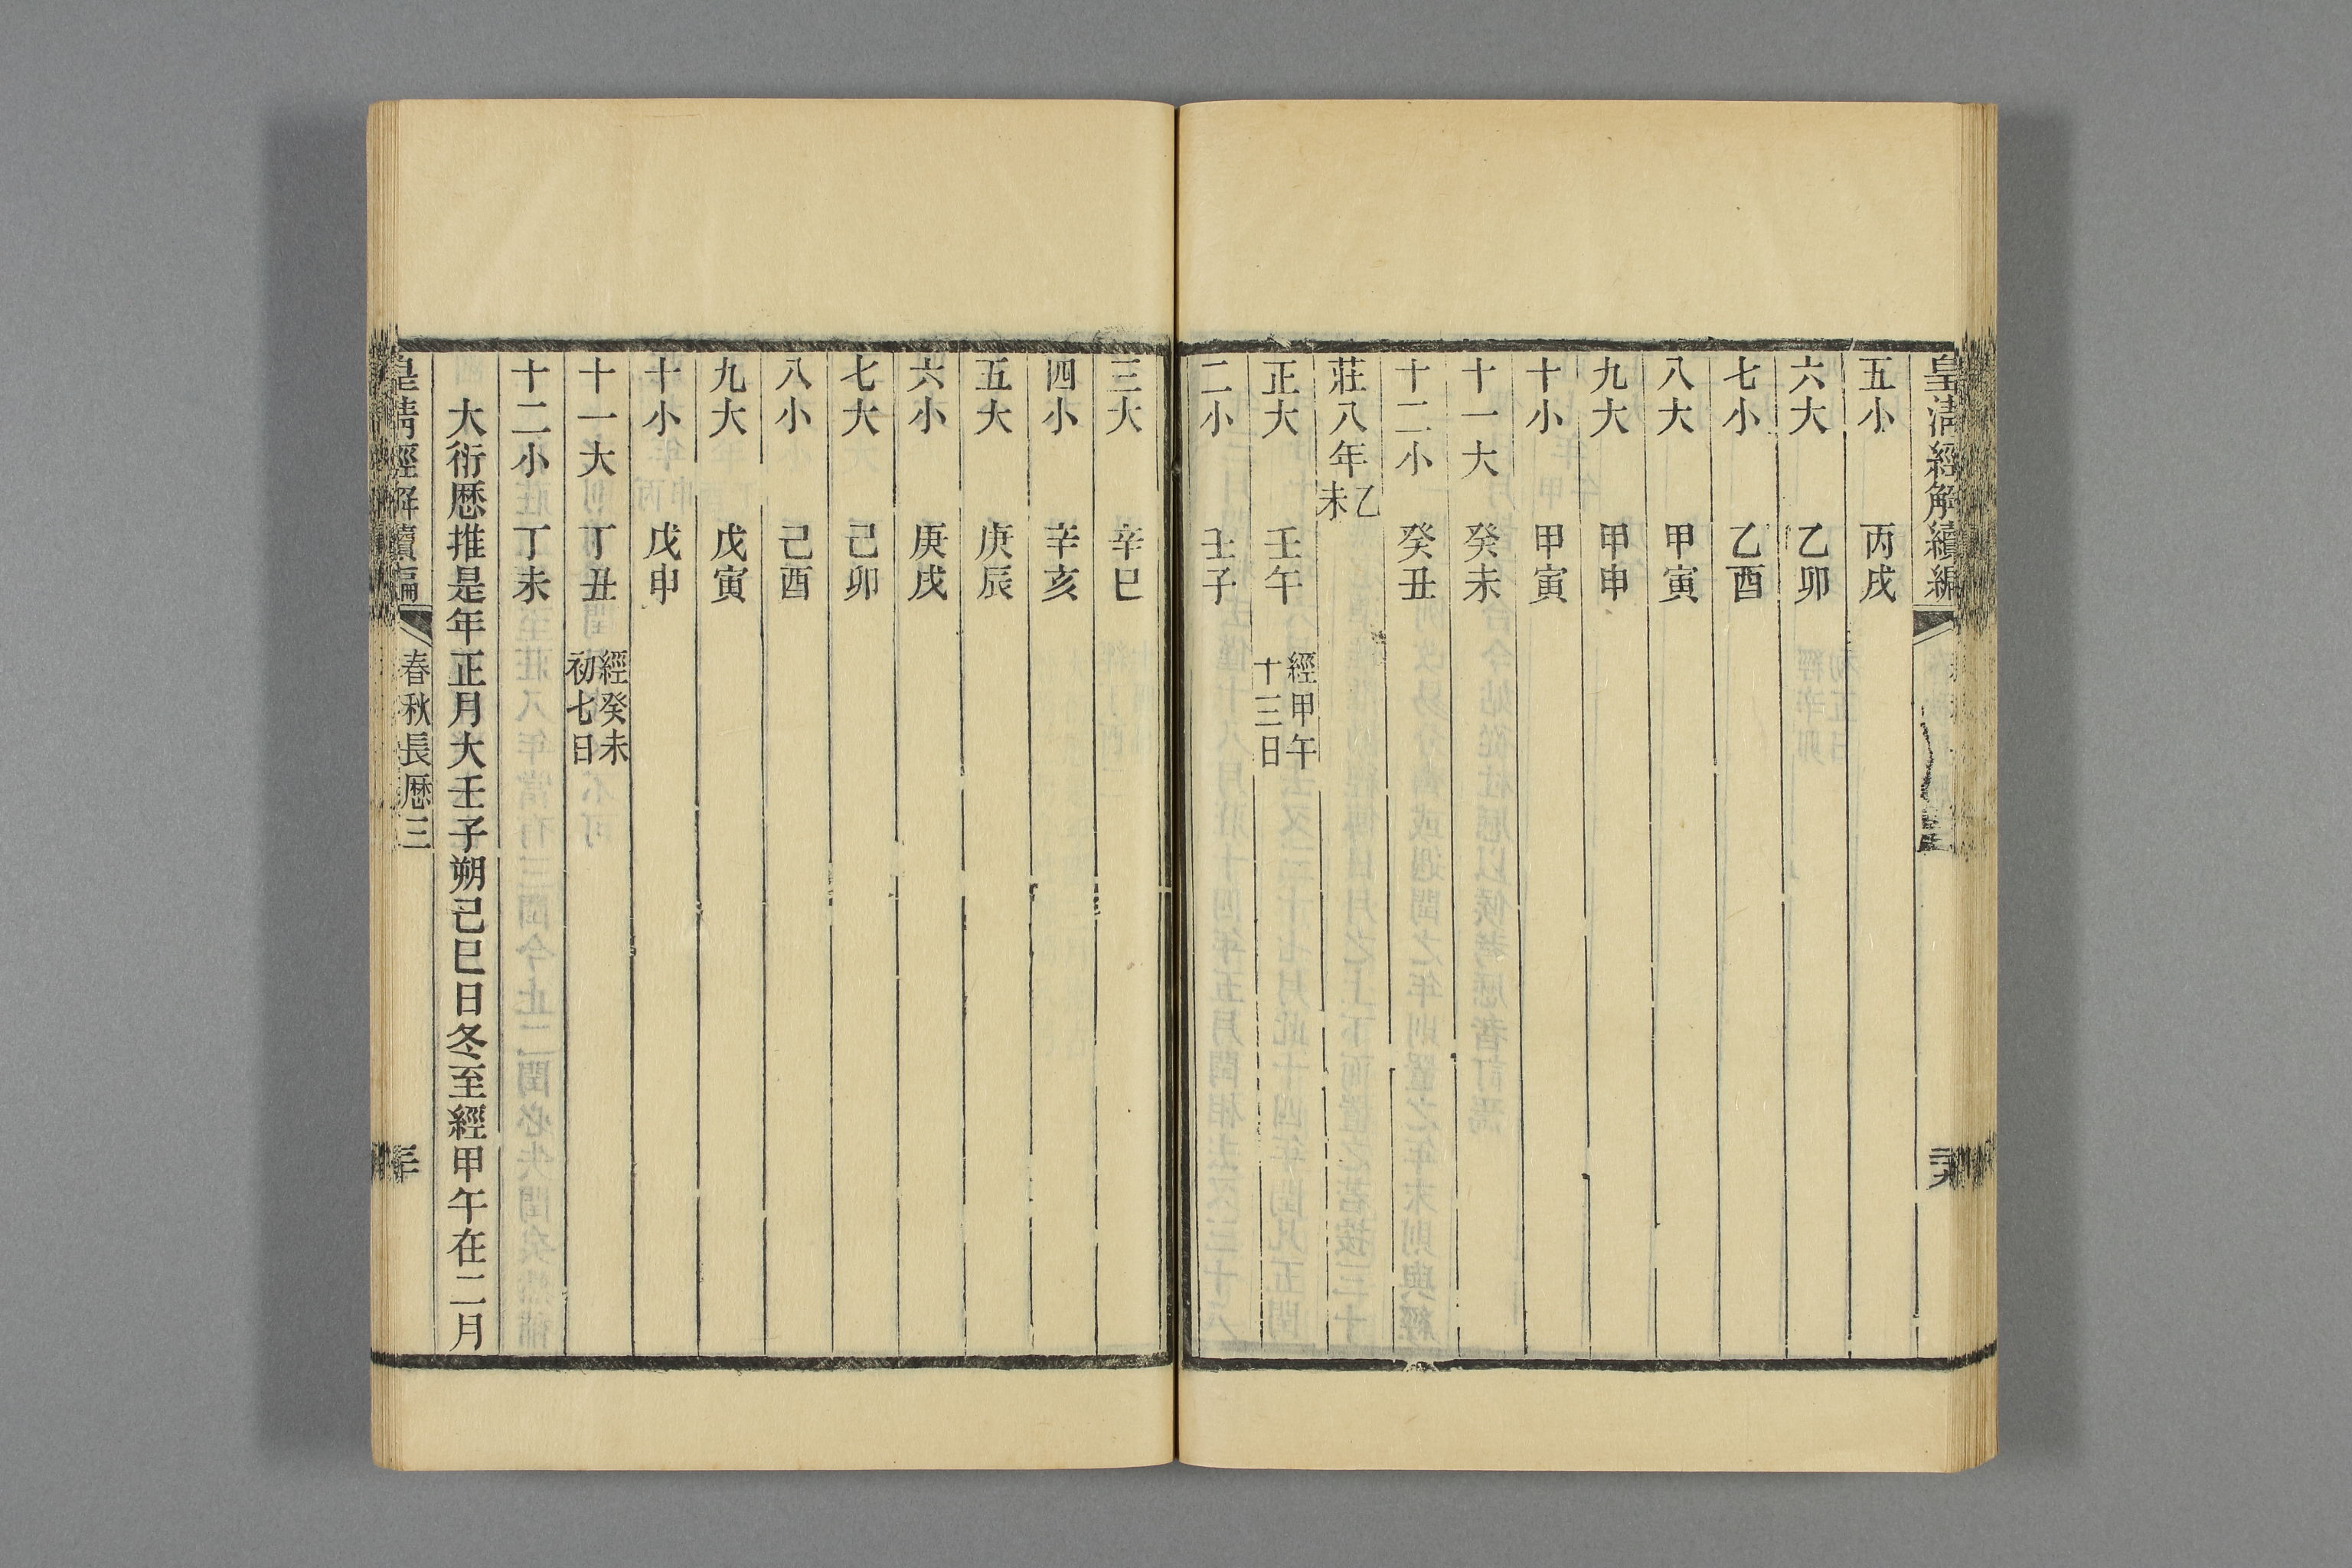 皇清經解續編
五小 丙戌
六大 乙卯
七小 乙酉
八大 甲寅
九大 甲申
十小 甲寅
十一大 癸未
十二小 癸丑
莊八年 乙未
正大 壬午 經甲午十三日
二小 壬子
三大 辛巳
四小 辛亥
五大 庚辰
六小 庚戌
七大 己卯
八小 己酉
九大 戊寅
十小 戊申
十一大 丁丑 經癸未初七日
十二小 丁未
大衍厯推是年正月大壬子朔己巳日冬至經甲午在二月
皇清經解續編 春秋長厯三